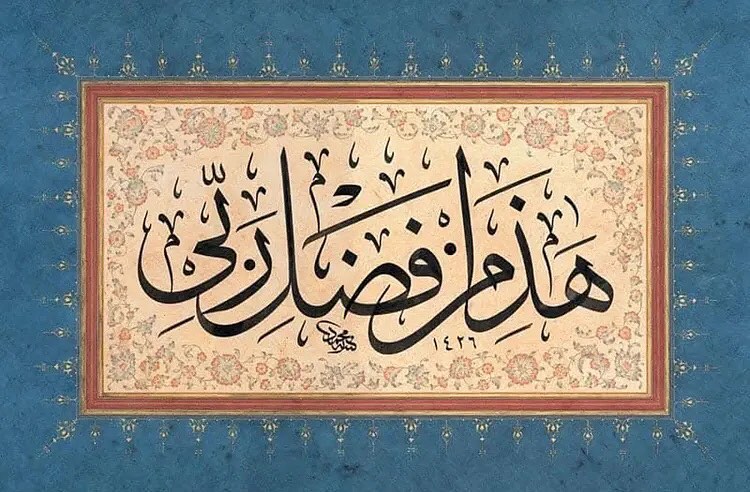 هذا من فضل ربي
١٤٢٦